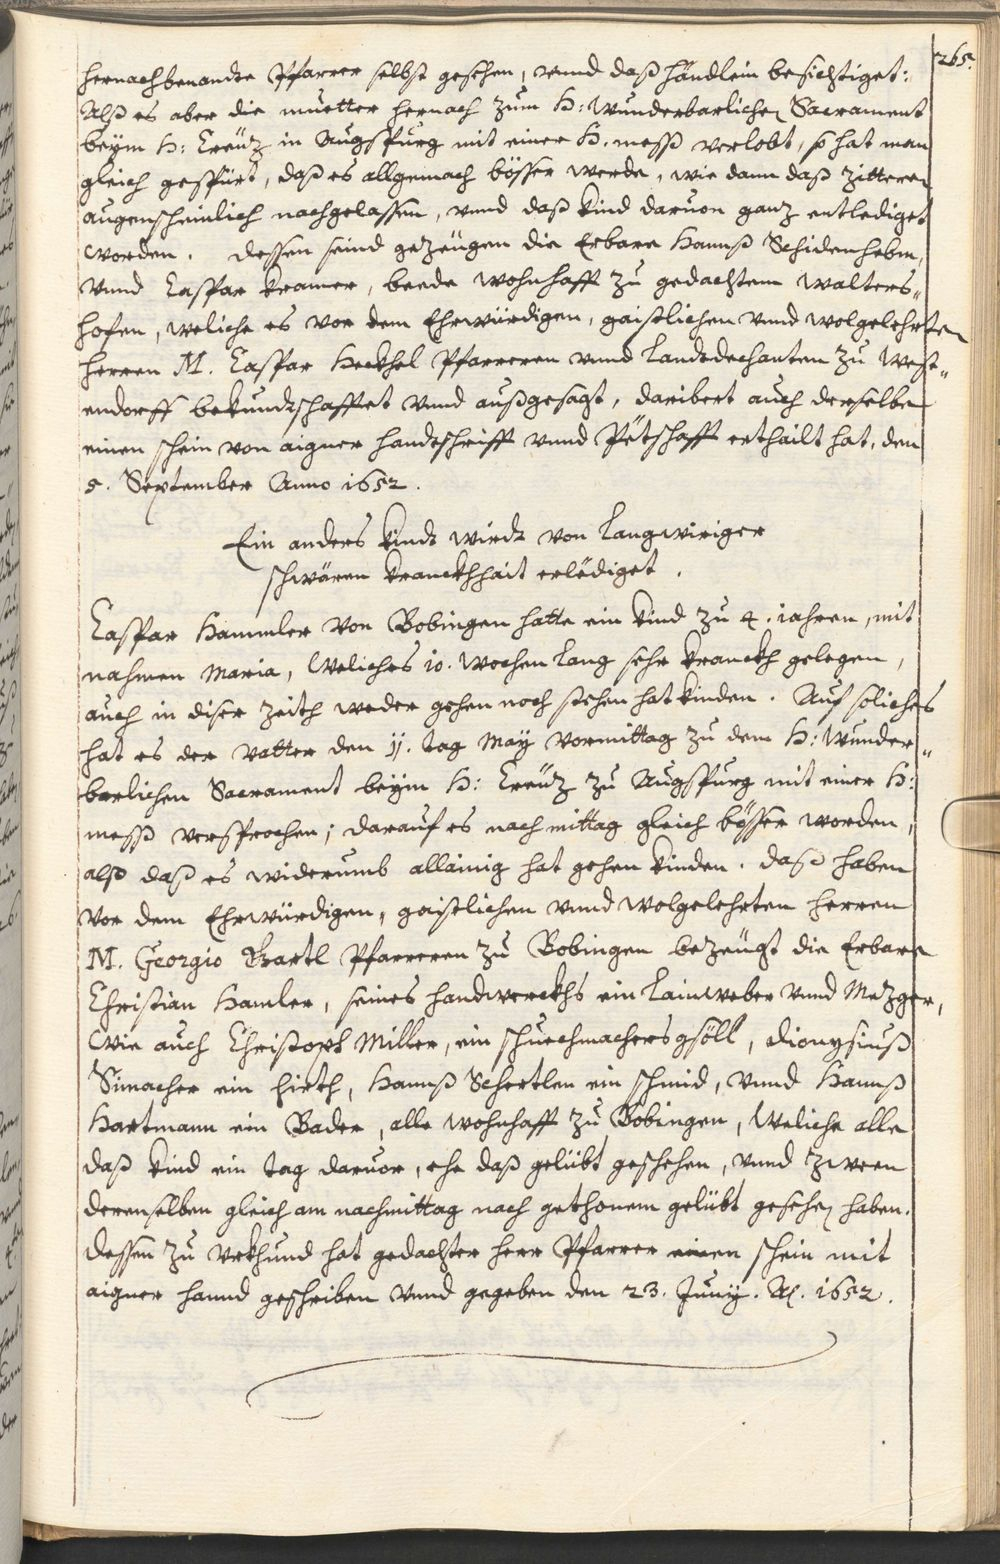 265.
hernachbenandte Pfarrer selbst gesehen, vnnd daß händlein besichtiget:
Alß es aber die muetter hernach zum H: Wunderbarlichen Sacrament
beÿm H: Creütz in Augspurg mit einer H. mess verlobt, so hat man
gleich gespürt, daß es allgemach bösser werde, wie dann daß zitteren
augenscheinlich nachgelassen, vnnd daß kind daruon ganz entlediget
worden. dessen seind gezeügen die Erbare Hannß Schidenhelm,
vnnd Caspar Kramer, beede wohnhafft zu gedachtem Walters„
hofen, weliche es vor dem Ehrwürdigen, gaistlichen vnnd wolgelehrten
herren M. Caspar Heckhel Pfarreren vnnd Landtdechanten zu West„
endorff bekundtschafftet vnnd außgesagt, daribert auch derselbe
einen schein von aigner handtschrifft vnnd Pётschafft erthailt hat, den
5. September Anno 1652.
Ein anders kindt wirdt von langwiriger
schwären kranckhhait erlediget.
Caspar Hammler von Bobingen hatte ein kind zu 4. iahren, mit
nahmen Maria, Weliches 10. wochen lang sehr kranckh gelegen,
auch in diser zeith weder gehen noch stehen hat kinden. Auf soliches
hat es der vatter den 11. tag Maÿ vormittag zu dem H: Wunder„
barlichen Sacrament beÿm H: Creütz zu Augspurg mit einer H:
mess versprochen; darauf es nach mittag gleich bösser worden,
also daß es widerumb allainig hat gehen kinden. daß haben
vor dem Ehrwürdigen, gaistlichen vnnd wolgelehrten herren
M. Georgio Bartl Pfarreren zu Bobingen bezeügt die Erbare
Christian Hamler, seines handtwerckhs ein Lainweber vnnd Metzger,
Wie auch Christoph Miller, ein schuechmachersgsöll, Dionysiuß
Simacher ein hirth, Hannß Schertlen ein schmid, vnnd Hannß
Hartmann ein Bader, alle wohnhafft zu Bobingen, Weliche alle
daß kind ein tag daruor, ehe daß gelübt geschehen, vnnd zween
derenselben gleich am nachmittag nach gethonem gelübt gesehen haben.
dessen zu Vrkhund hat gedachter herr Pfarrer einen schein mit
aigner hannd geschriben vnnd gegeben den 23. Junÿ. A. 1652.